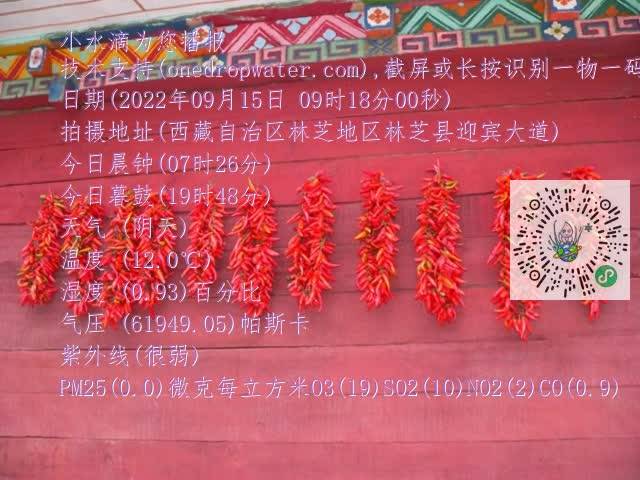 小水滴为您播报
技术支持(onedropwater.com),截屏或长按识别一物一码
日期(2022年09月15日 09时18分00秒)
拍摄地址(西藏自治区林芝地区林芝县迎宾大道)
今日晨钟(07时26分)
今日暮鼓(19时48分)
天气 (阴天)
温度 (12.0℃)
湿度 (0.93)百分比
气压 (61949.05)帕斯卡
紫外线(很弱)
PM25(0.0)微克每立方米O3(19)SO2(10)NO2(2)CO(0.9)